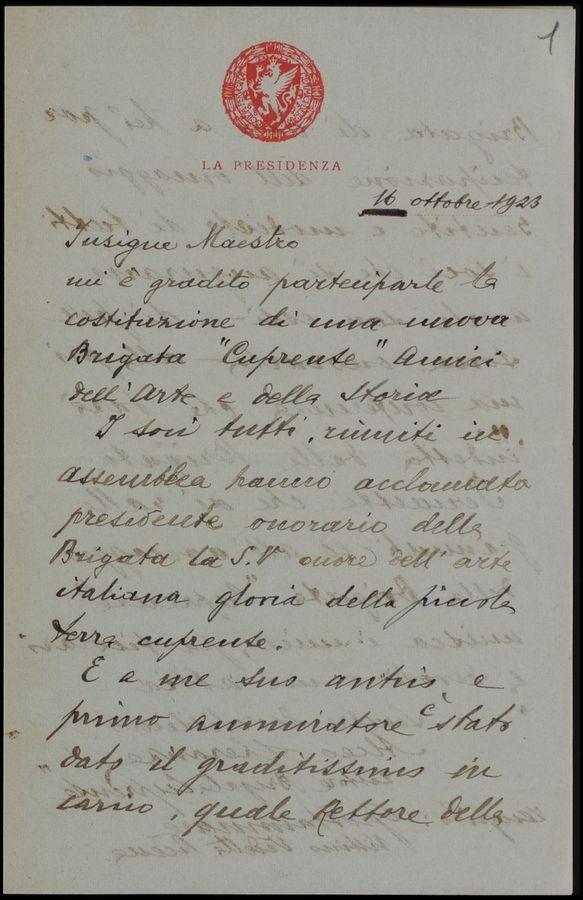 1
LA PRESIDENZA
16 ottobre 1923
Insigne Maestro
mi è gradito parteciparle la
costituzione di una nuova
Brigata "Cuprense" Amici
dell'Arte e della Storia
I soci tutti, riuniti in
assemblea hanno acclamato
presidente onorario della
Brigata la S.V. onore dell'arte
italiana gloria della piccola
terra cuprense.
E a me suo antico e
primo ammiratore è stato
dato il graditissimo in
carico, quale Rettore della